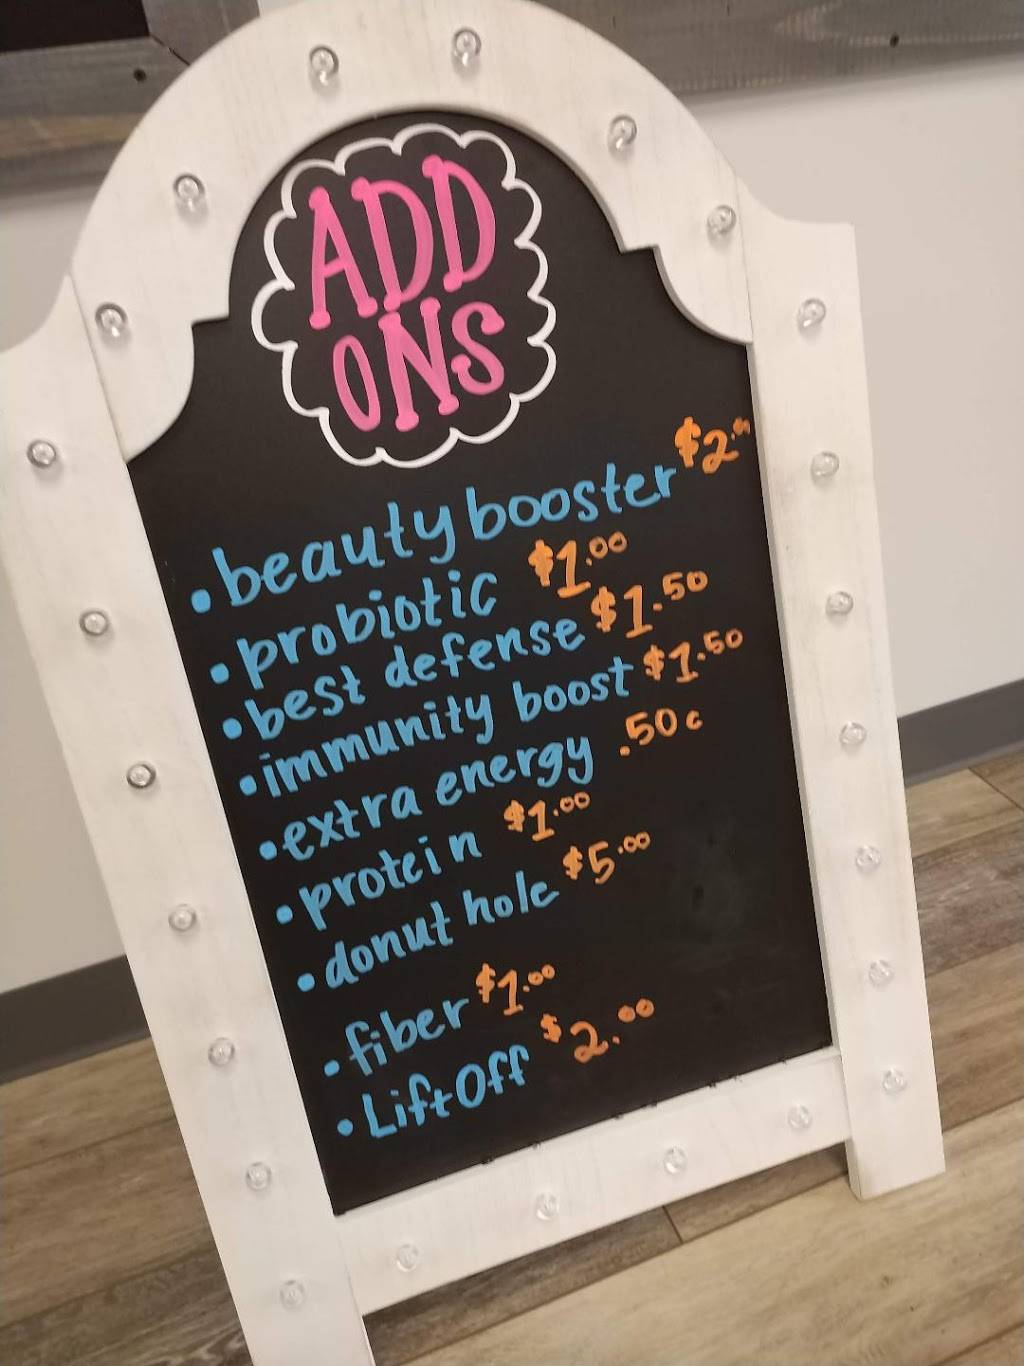 ADD
ONS
• beauty booster $2.00
• probiotic $1.00
• best defense $1.50
• immunity boost $1.50
• extra energy .50 c
• protein $1.00
• donut hole $5.00
• fiber $1.00
• LiftOff $2.00